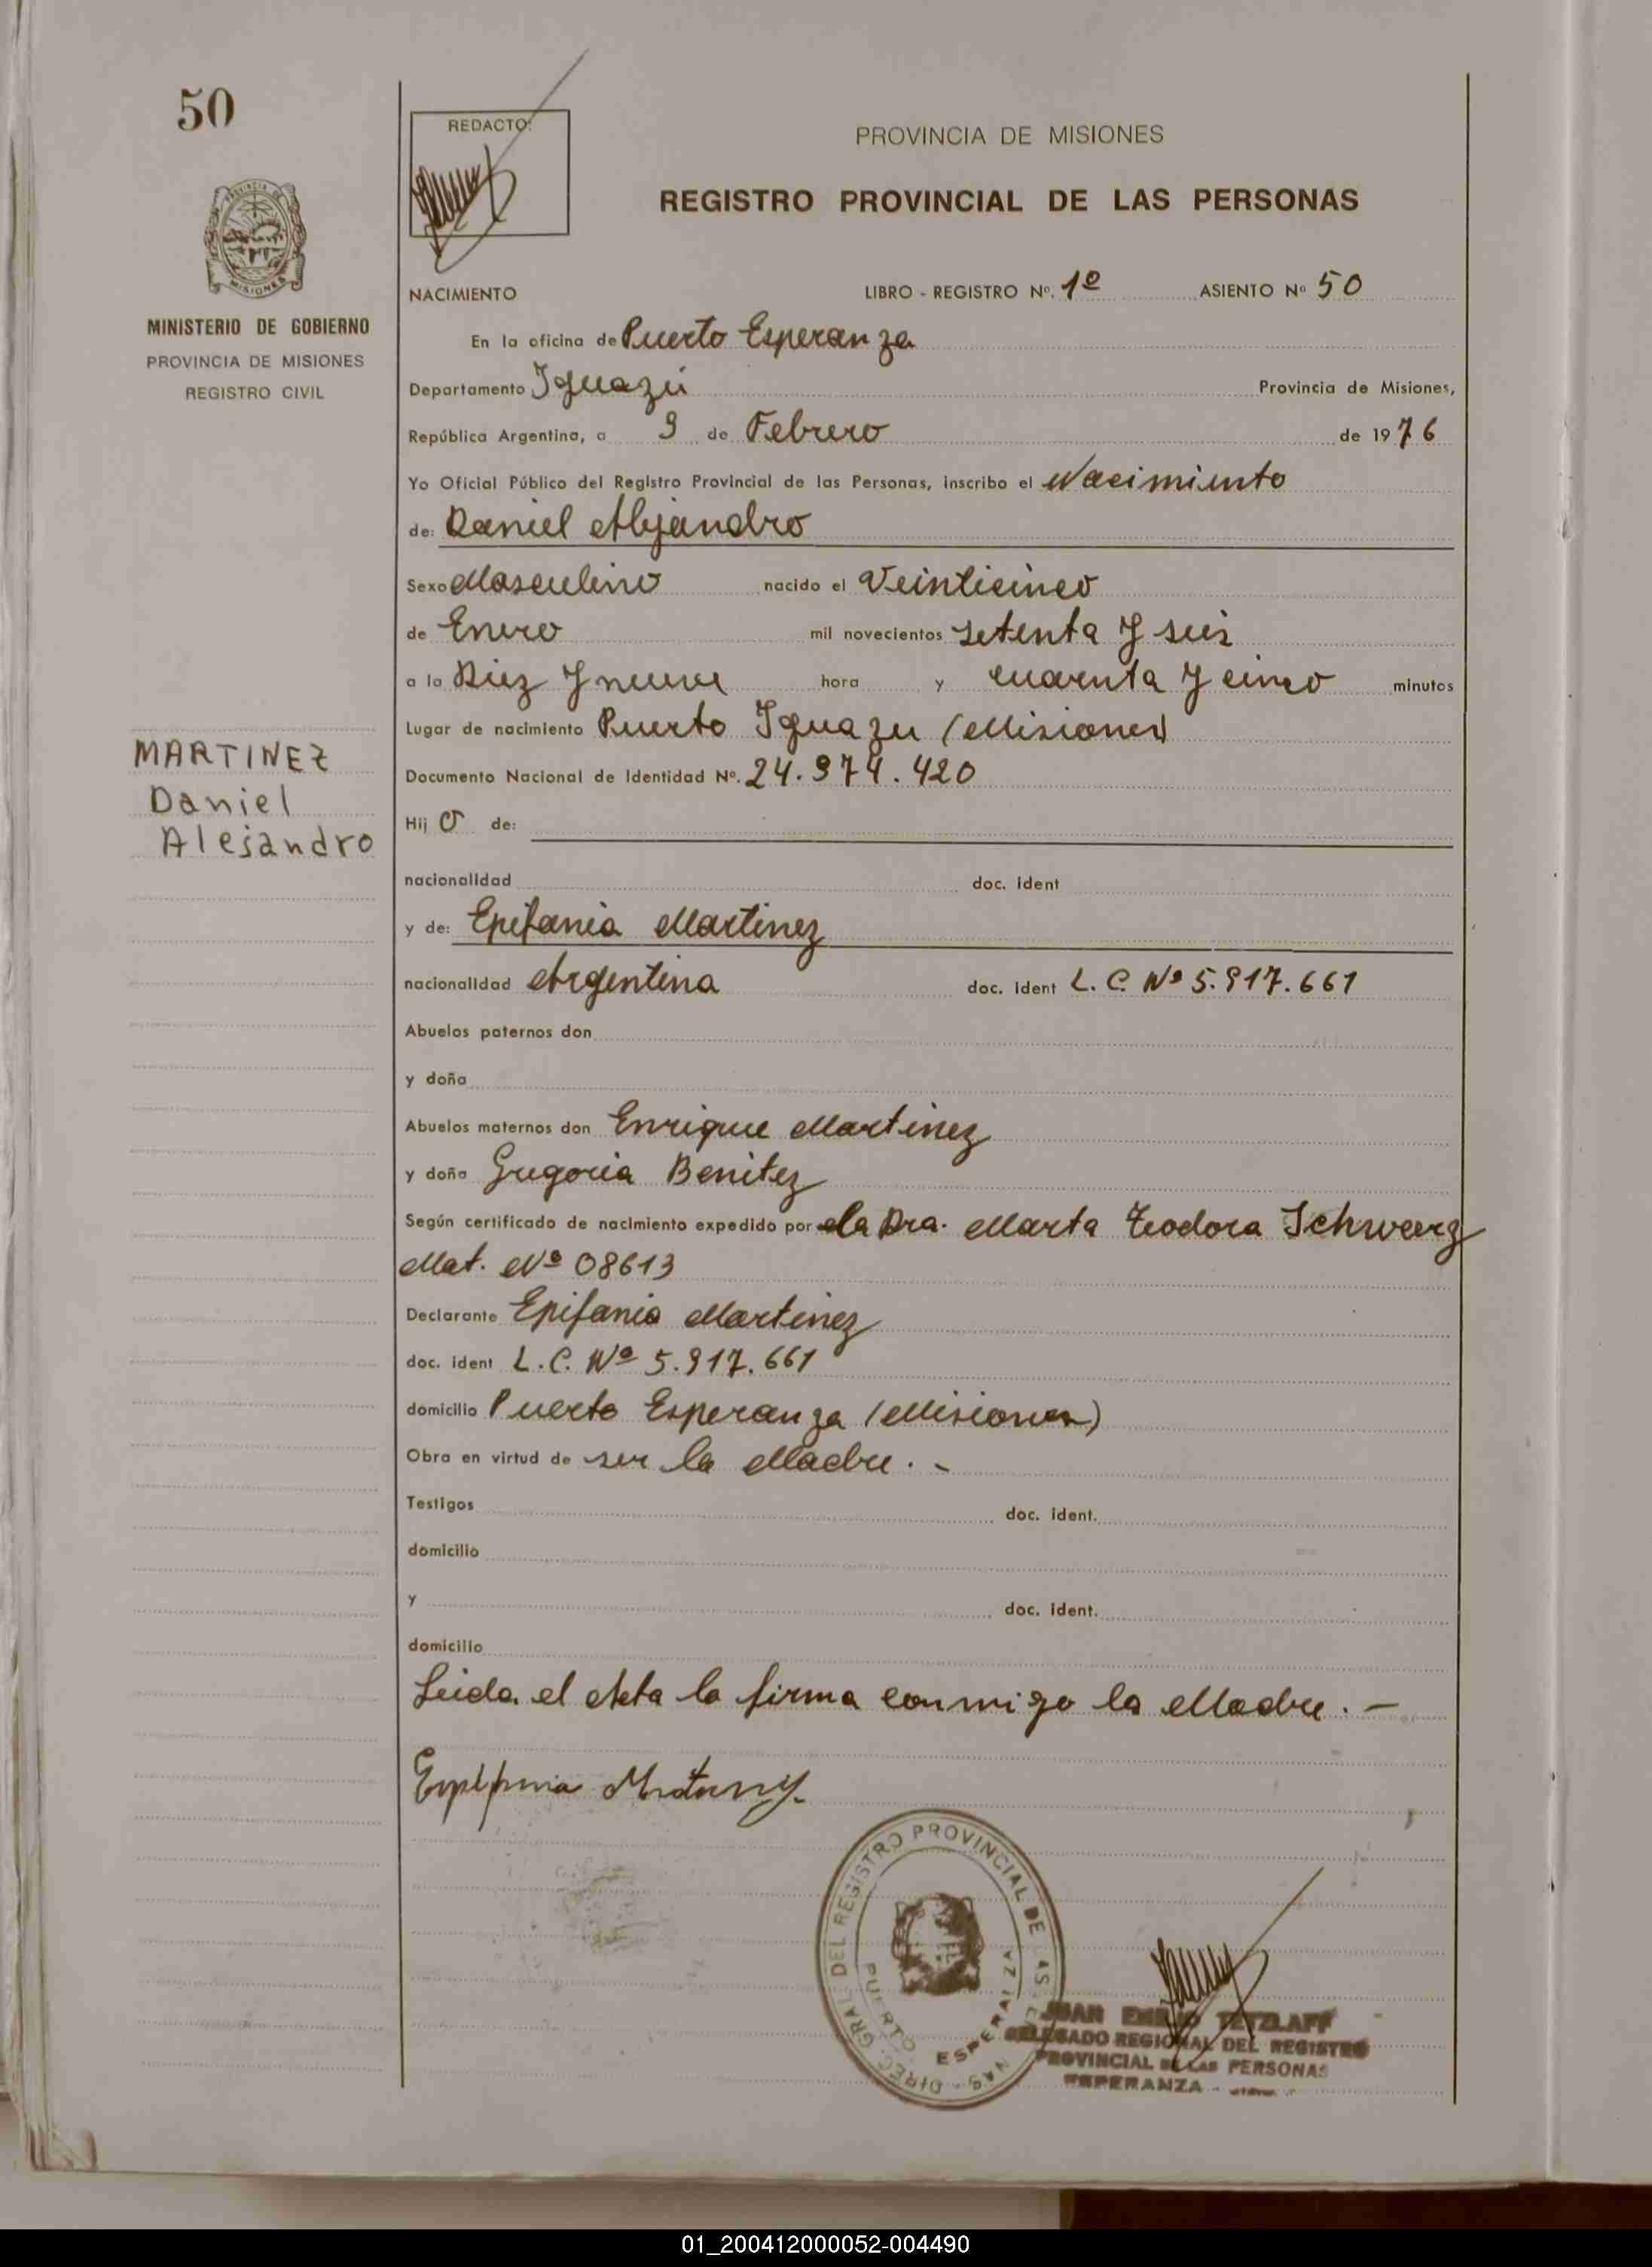 50
PROVINCIA DE
MISIONES
MINISTERIO DE GOBIERNO
PROVINCIA DE MISIONES
REGISTRO CIVIL
MARTINEZ
Daniel
Alejandro
REDACTO:
PROVINCIA DE MISIONES
REGISTRO PROVINCIAL DE LAS PERSONAS
NACIMIENTO LIBRO - REGISTRO Nº. 1º ASIENTO Nº 50
En la oficina de Puerto Esperanza
Departamento Iguazú Provincia de Misiones,
República Argentina, a 9 de Febrero de 1976
Yo Oficial Público del Registro Provincial de las Personas, inscribo el Nacimiento
de: Daniel Alejandro
Sexo Masculino nacido el Veinticinco
de Enero mil novecientos setenta y seis
a la Diez y nueve hora y cuarenta y cinco minutos
Lugar de nacimiento Puerto Iguazu (Misiones)
Documento Nacional de Identidad Nº. 24.974.420
Hij o de:
nacionalidad doc. ident
y de: Epifania Martinez
nacionalidad Argentina doc. ident L.C. Nº 5.917.661
Abuelos paternos don
y doña
Abuelos maternos don Enrique Martinez
y doña Gregoria Benitez
Según certificado de nacimiento expedido por la Dra. Marta Teodora Schweerz
Mat. Nº 08613
Declarante Epifania Martinez
doc. ident L.C. Nº 5.917.661
domicilio Puerto Esperanza (Misiones)
Obra en virtud de ser la Madre. -
Testigos doc. ident.
domicilio
y doc. ident.
domicilio
Leida el Acta la firma conmigo la Madre. -
DIREC. GRAL. DEL REGISTRO PROVINCIAL DE LAS PERSONAS
PUERTO ESPERANZA
JUAN EMILIO TETZLAFF
DELEGADO REGIONAL DEL REGISTRO
PROVINCIAL DE LAS PERSONAS
ESPERANZA -
01_200412000052-004490